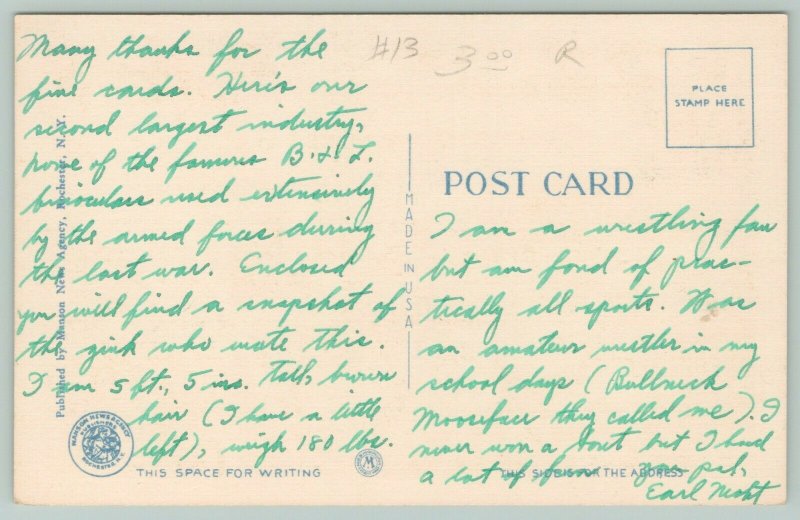 Many thanks for the
fine cards. Here's our
second largest industry,
home of the famous B. & L.
binoculars used extensively
by the armed forces during
the last war. Enclosed
you will find a snapshot of
the gink who wrote this.
I am 5 ft., 5 ins. tall, brown
hair (I have a little
left), weigh 180 lbs.
#13
3.00 R
PLACE
STAMP HERE
POST CARD
I am a wrestling fan
but am fond of prac-
tically all sports. Was
an amateur wrestler in my
school days (Bullneck
Mooseface they called me). I
never won a bout but I had
a lot of fun. Your pal,
Earl
Published by Manson News Agency, Rochester, N.Y.
MADE IN USA
MANSON NEWS AGENCY
PUBLISHERS
ROCHESTER, N.Y.
THIS SPACE FOR WRITING
THIS SIDE IS FOR THE ADDRESS